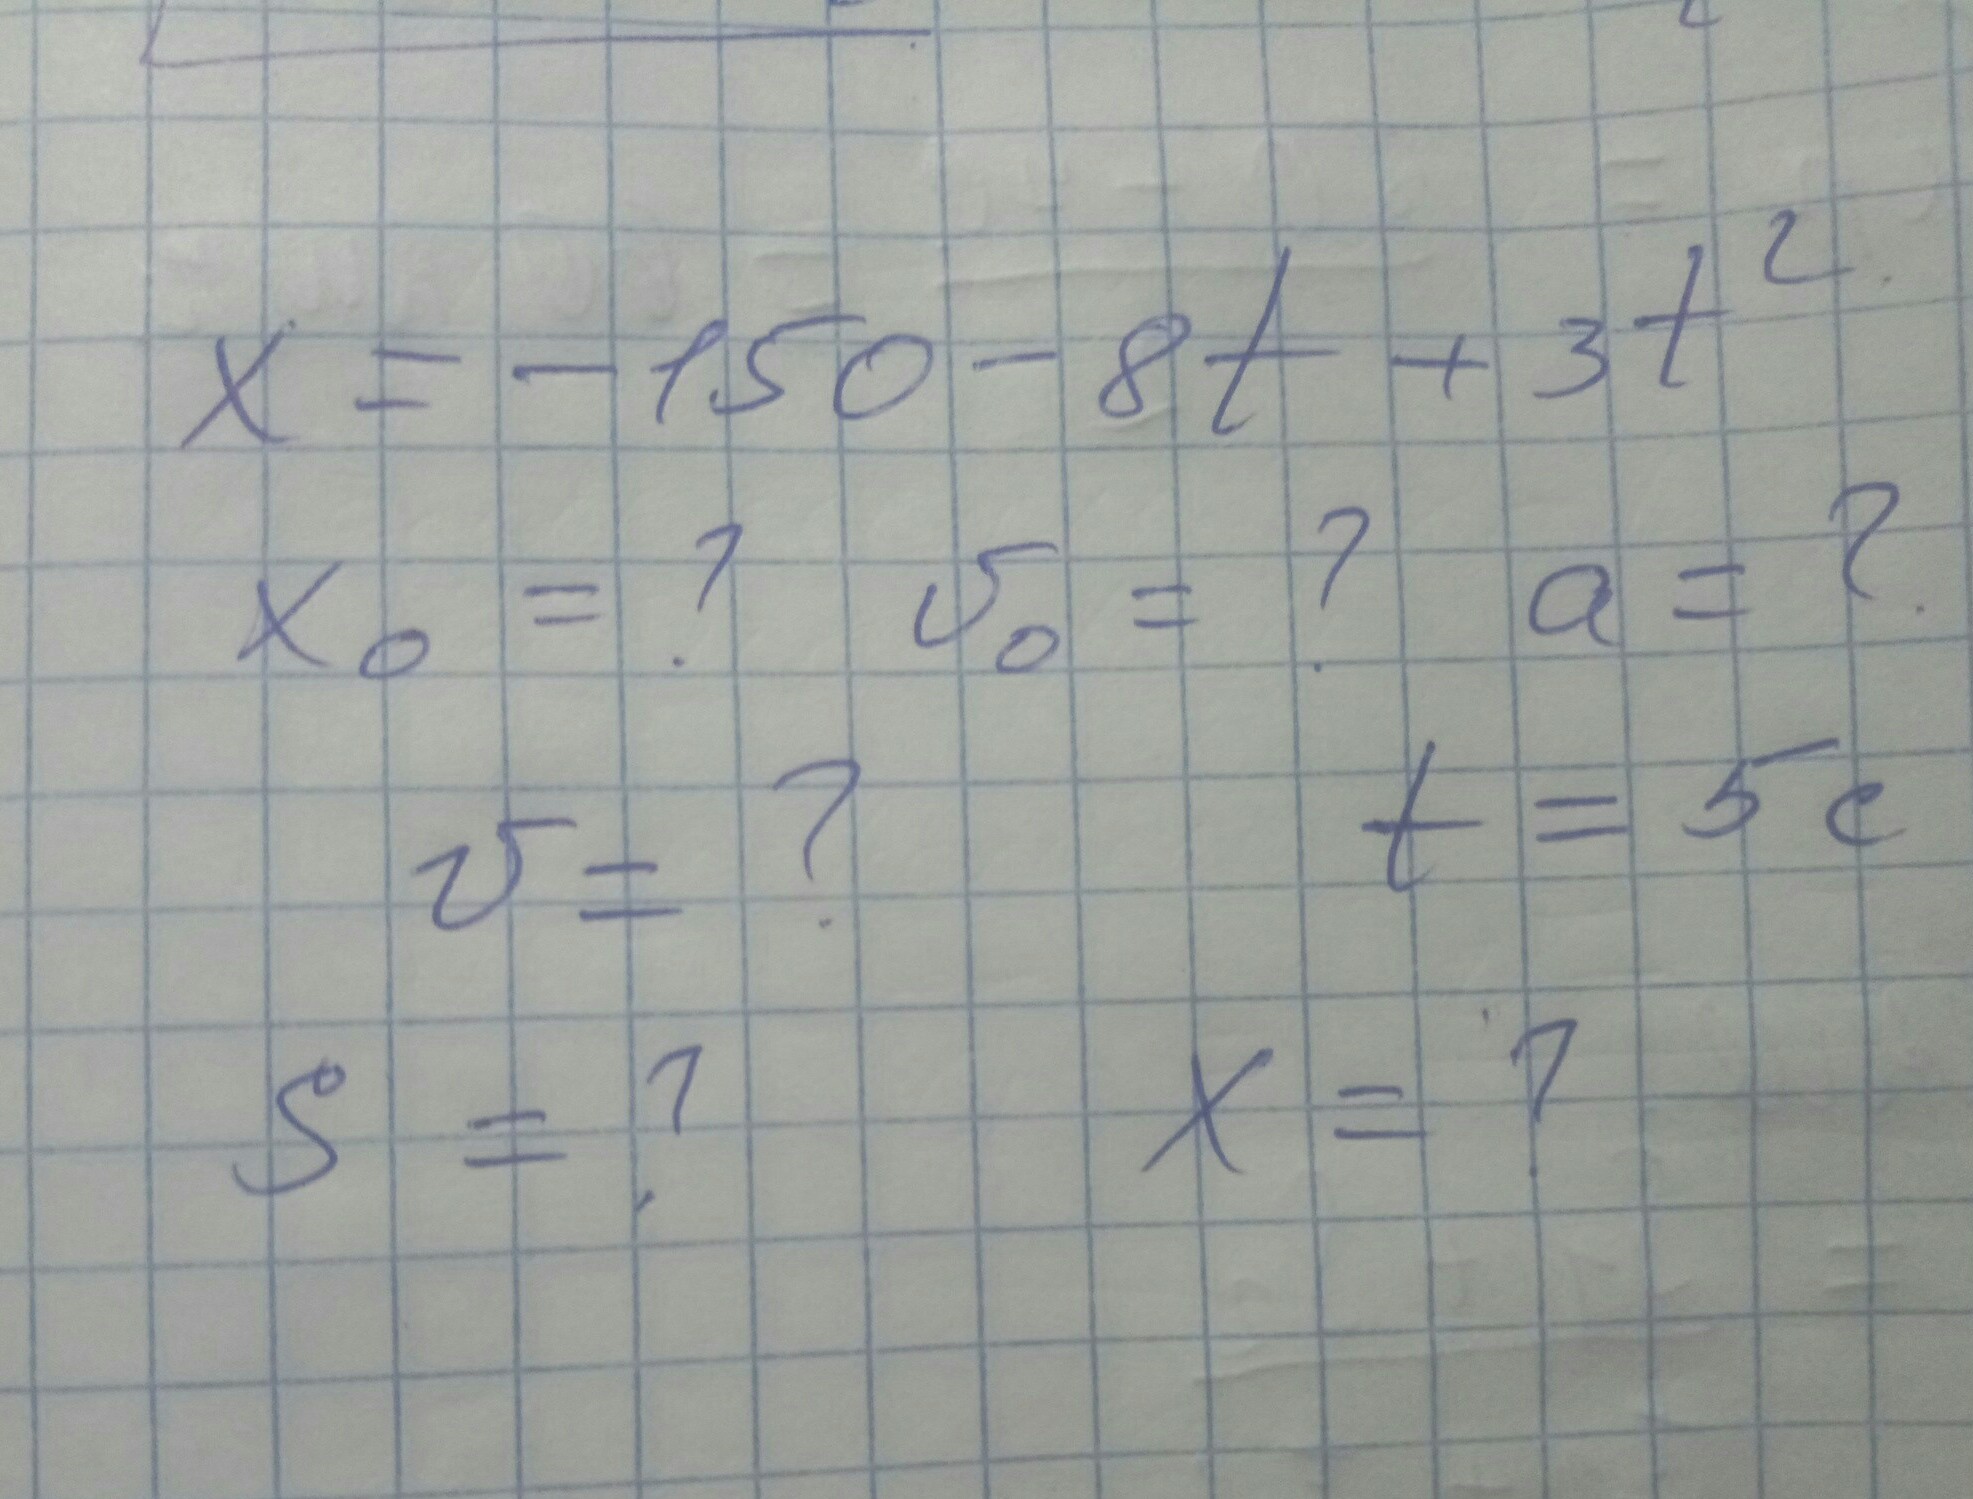 x = -150 - 8t + 3t²
x₀ = ? v₀ = ? a = ?
v = ? t = 5 c
S = ? x = ?